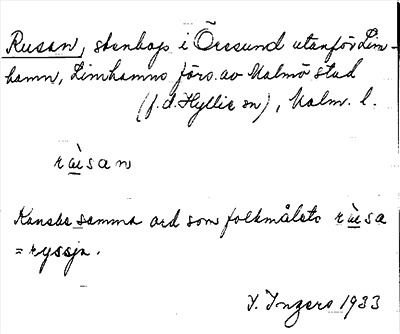 Rusan, stenhop i Öresund utanför Lim-
hamn, Limhamns förs. av Malmö stad
(f. d. Hyllie sn), Malm. l.
räi̯san
Kanske samma ord som folkmålets
= ryssja.
I. Ingers 1933